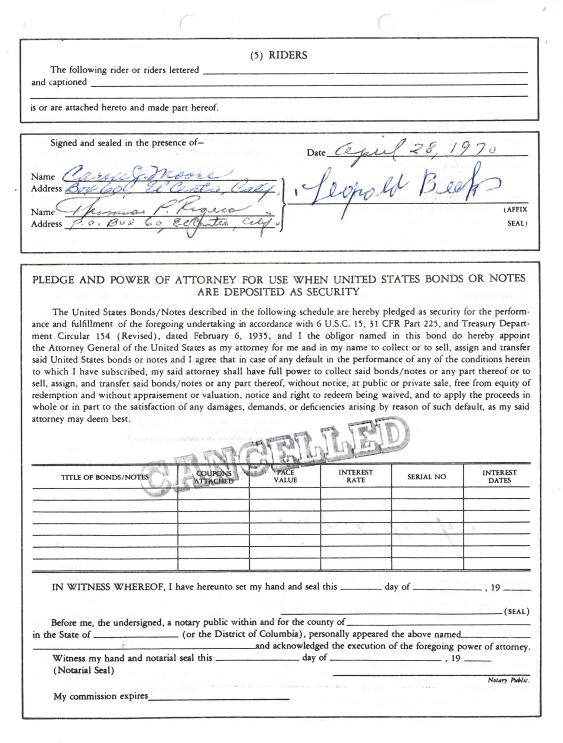 (5) RIDERS
The following rider or riders lettered
and captioned
is or are attached hereto and made part hereof.
Signed and sealed in the presence of—
Date April 28, 1970
Name Carrie J. Moore
Address Box 60, El Centro, Calif.
Leopold
Name Thomas P.
(AFFIX
Address P.O. Box 60, El Centro, Calif.
SEAL)
PLEDGE AND POWER OF ATTORNEY FOR USE WHEN UNITED STATES BONDS OR NOTES
ARE DEPOSITED AS SECURITY
The United States Bonds/Notes described in the following schedule are hereby pledged as security for the perform-
ance and fulfillment of the foregoing undertaking in accordance with 6 U.S.C. 15, 31 CFR Part 225, and Treasury Depart-
ment Circular 154 (Revised), dated February 6, 1935, and I the obligor named in this bond do hereby appoint
the Attorney General of the United States as my attorney for me and in my name to collect or to sell, assign and transfer
said United States bonds or notes and I agree that in case of any default in the performance of any of the conditions herein
to which I have subscribed, my said attorney shall have full power to collect said bonds/notes or any part thereof or to
sell, assign, and transfer said bonds/notes or any part thereof, without notice, at public or private sale, free from equity of
redemption and without appraisement or valuation, notice and right to redeem being waived, and to apply the proceeds in
whole or in part to the satisfaction of any damages, demands, or deficiencies arising by reason of such default, as my said
attorney may deem best.
CANCELLED
TITLE OF BONDS/NOTES COUPONS ATTACHED FACE VALUE INTEREST RATE SERIAL NO INTEREST DATES
IN WITNESS WHEREOF, I have hereunto set my hand and seal this day of , 19
(SEAL)
Before me, the undersigned, a notary public within and for the county of
in the State of (or the District of Columbia), personally appeared the above named
and acknowledged the execution of the foregoing power of attorney.
Witness my hand and notarial seal this day of , 19
(Notarial Seal)
Notary Public.
My commission expires